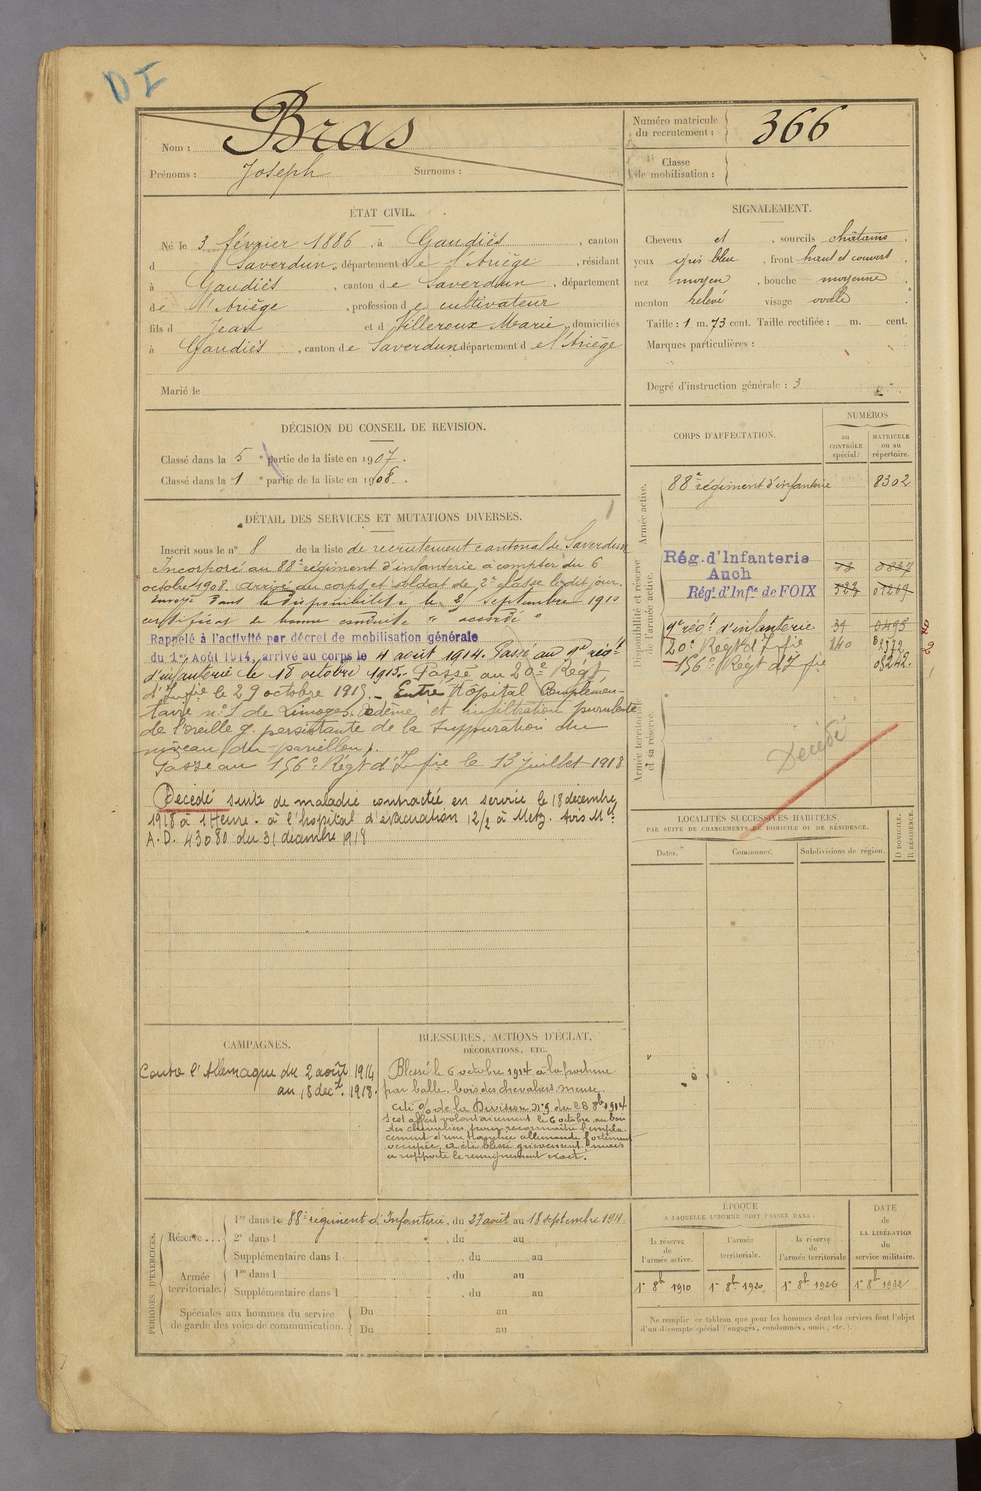 DI
Nom : Bras
Prénoms : Joseph Surnoms :
Numéro matricule du recrutement : 366
Classe de mobilisation :
ÉTAT CIVIL.
Né le 3 février 1886, à Gaudiès, canton
d Saverdun, département de l'Ariège, résidant
à Gaudiès, canton de Saverdun, département
de l'Ariège, profession de cultivateur
fils d Jean et d Villeroux Marie, domiciliés
à Gaudiès, canton de Saverdun département de l'Ariège
Marié le
SIGNALEMENT.
Cheveux et, sourcils châtains
yeux gris bleu, front haut et couvert
nez moyen, bouche moyenne
menton relevé visage ovale
Taille : 1 m. 73 cent. Taille rectifiée : m. cent.
Marques particulières :
Degré d'instruction générale : 3
DÉCISION DU CONSEIL DE REVISION.
Classé dans la 5e partie de la liste en 1907.
Classé dans la 1e partie de la liste en 1908.
DÉTAIL DES SERVICES ET MUTATIONS DIVERSES.
Inscrit sous le n° 8 de la liste de recrutement cantonal de Saverdun
Incorporé au 88e régiment d'infanterie à compter du 6
octobre 1908. arrivé au corps et soldat de 2e classe ledit jour.
Envoyé dans la disponibilité le 25 septembre 1910
certificat de bonne conduite "accordé"
Rappelé à l'activité par décret de mobilisation générale
du 1er Août 1914, arrivé au corps le 4 août 1914. Passé au 9e régt
d'infanterie le 18 octobre 1915. Passé au 20e Régt
d'Infie le 29 octobre 1915. Entré Hôpital Complémen-
taire n° 1 de Limoges. Oedème et infiltration purulente
de l'oreille g. persistante de la suppuration au
niveau du pavillon.
Passé au 156e Régt d'Infie le 13 juillet 1918
Décédé suite de maladie contractée en service le 18 décembre
1918 à 1 Heure. à l'hôpital d'évacuation 12/2 à Metz. Avis Mel
A.D. 43080 du 31 décembre 1918
CORPS D'AFFECTATION.
NUMÉROS
au CONTRÔLE spécial.
MATRICULE ou au répertoire.
Armée active.
88e régiment d'infanterie 8302
Disponibilité et réserve de l'armée active.
Rég. d'Infanterie
Auch
Régt d'Infie de FOIX
9e régt d'infanterie 31 0495
20e Régt d'Infie 140
156e Régt d'Infie
Armée territoriale et sa réserve.
Décédé
LOCALITÉS SUCCESSIVES HABITÉES
PAR SUITE DE CHANGEMENTS DE DOMICILE OU DE RÉSIDENCE.
Dates. Communes. Subdivisions de région. D DOMICILE. R RÉSIDENCE.
CAMPAGNES.
Contre l'Allemagne du 2 août 1914
au 18 déc. 1918.
BLESSURES, ACTIONS D'ÉCLAT,
DÉCORATIONS, ETC.
Blessé le 6 octobre 1914 à la poitrine
par balle. bois des chevaliers meuse.
Cité % de la Division du 28 8b 1914
s'est offert volontairement le 6 octobre au bois
des chevaliers pour reconnaître l'empla-
cement d'une tranchée allemande fortement
occupée. a été blessé grièvement mais
a rapporté le renseignement exact.
PÉRIODES D'EXERCICES.
Réserve... 1re dans le 88e régiment d'Infanterie, du 27 août au 18 septembre 1911
2e dans l , du au
Supplémentaire dans l , du au
Armée territoriale. 1re dans l , du au
Supplémentaire dans l , du au
Spéciales aux hommes du service de garde des voies de communication. Du au
Du au
ÉPOQUE
A LAQUELLE L'HOMME DOIT PASSER DANS :
la réserve de l'armée active. l'armée territoriale. la réserve de l'armée territoriale
DATE de LA LIBÉRATION du service militaire.
1er 8b 1910 1er 8b 1920 1er 8b 1926 1er 8b 1932
Ne remplir ce tableau que pour les hommes dont les services font l'objet
d'un décompte spécial (engagés, condamnés, omis, etc.).